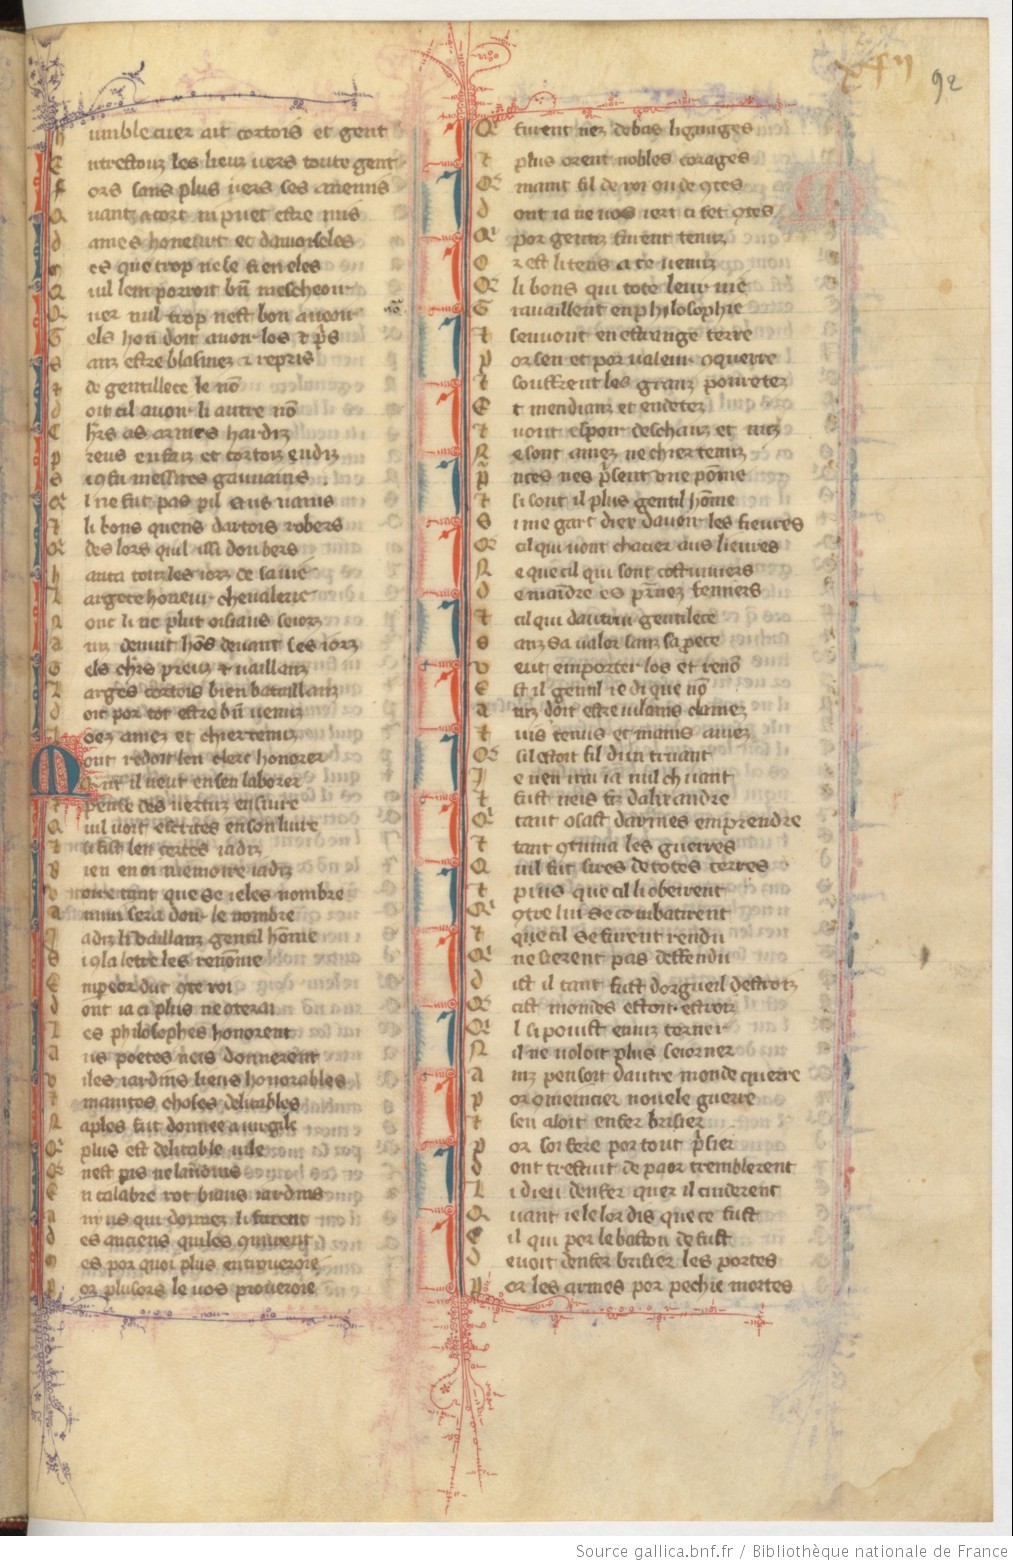 xcii
92
h umble cuer ait cortois et gent
E ntrestouz les lieus uers toute gent
F ors sans plus uers ses anemis
Q uant acort ni puet estre mis
d ames honeurt et damoiseles
m es que trop ne se fi en eles
Q uil lem porroit bn̄ mescheoir
Q uer nul trop nest bon aueoir
G els hon doit auoir los ⁊ pris
s anz estre blasmez ⁊ repris
⁊ de gentillece le nō
d oit cil auoir li autre nō
C hr̄s as armes hardiz
p reus en faiz et cortois en diz
s i ꝯ fu messires gauuains
Q' l ne fut pas pil aus uains
⁊ li bons quens dartois robers
Q' des lors quil issi dou bers
h anta touz les iorz de sa uie
L argece honeur cheualerie
n onc li ne plut oisiaus seiorz
a inz deuint hōs deuant ses iorz
G els chr̄s preuz ⁊ uaillanz
L arges cortois bien bataillanz
d oit por tot estre bn̄ uenuz
L oez amez et chiertenuz
M out redoit len clerc honorer
Q ui il ueut en sen laborer
⁊ pense des uertuz ensiure
Q uil uoit escrites en son liure
⁊ si fist len certes iadiz
b ien en oi memoire iadiz
uoire tant que se ie les nombre
a nnui sera dou le nombre
J adiz li vaillanz gentil hōme
S i ꝯ la letre les renōme
E mpeor duc ꝯte roi
d ont ia ci plus ne ꝯterai
L es philosophes honorerent
a us poetes neis donnerent
v iles iardins lieus honorables
⁊ maintes choses delitables
N aples fut donnee a uirgile
Q' plus est delitable uile
Q' nest pris ne landuns
E n calabre rot biaus iardins
a nnius qui donnez li furent
d es anciens qui les ꝯnurent
m es por quoi plus en troueroie
p or plusors le uos proueroie
Q' furent nez de bas lignages
⁊ plus orent nobles corages
Q' maint fil de roi ou de ꝯtes
d ont ia ne uos iert ci fet ꝯtes
Q' por gentiz furent tenuz
O r est li tens a ce uenuz
Q' li bons qui tote leur uie
G rauaillent en philosophie
⁊ senuont en estrange terre
p or sen et por valeur ꝯquerre
⁊ souffrent les granz pouretez
E t mendianz et endetez
⁊ uont espoir deschauz et nuz
N e sont amez ne chiertenuz
p̄ nces nes p̓sent une pōme
⁊ si sont il plus gentil hōme
S i me gart diex dauoir les fieures
Q' cil qui uont chacier aus lieures
N e que cil qui sont costumiers
d emaīdre es p̓miez fenniers
⁊ cil qui dautrui gentilece
s anz sa valor sanz sa pcece
v eut emporter los et renō
E st il gentil ie di que nō
a inz doit estre uilains clamez
⁊ uis tenus et mains amez
Q' sil estoit fil dun truant
J e nen irai ia nul chuant
⁊ fust neis fiz dalixandre
Q' tant osast darmes emprendre
⁊ tant ꝯtinua les guerres
Q uil fut sires de totes terres
⁊ puis que cil li obeirent
Q' ꝯtre lui se combatirent
⁊ que cil se furent rendu
Q' ne sierent pas deffendu
d ist il tant fust dorgueil destroiz
Q' cist mondes estoit estroiz
Q' l si pouist enuiz torner
N il ne uoloit plus seiorner
a inz pensoit dautre monde querre
p or ꝯmencier nouele guerre
⁊ sen aloit enfer brisier
p or soi fere por tout p̓sier
d ont trestuit de paor tremblerent
L i dieu denfer quer il cuiderent
Q uant ie le lor dis que ce fust
C il qui por le baston de fust
d euoit denfer brisier les portes
p or les armes por pechie mortes
Source gallica.bnf.fr / Bibliothèque nationale de France